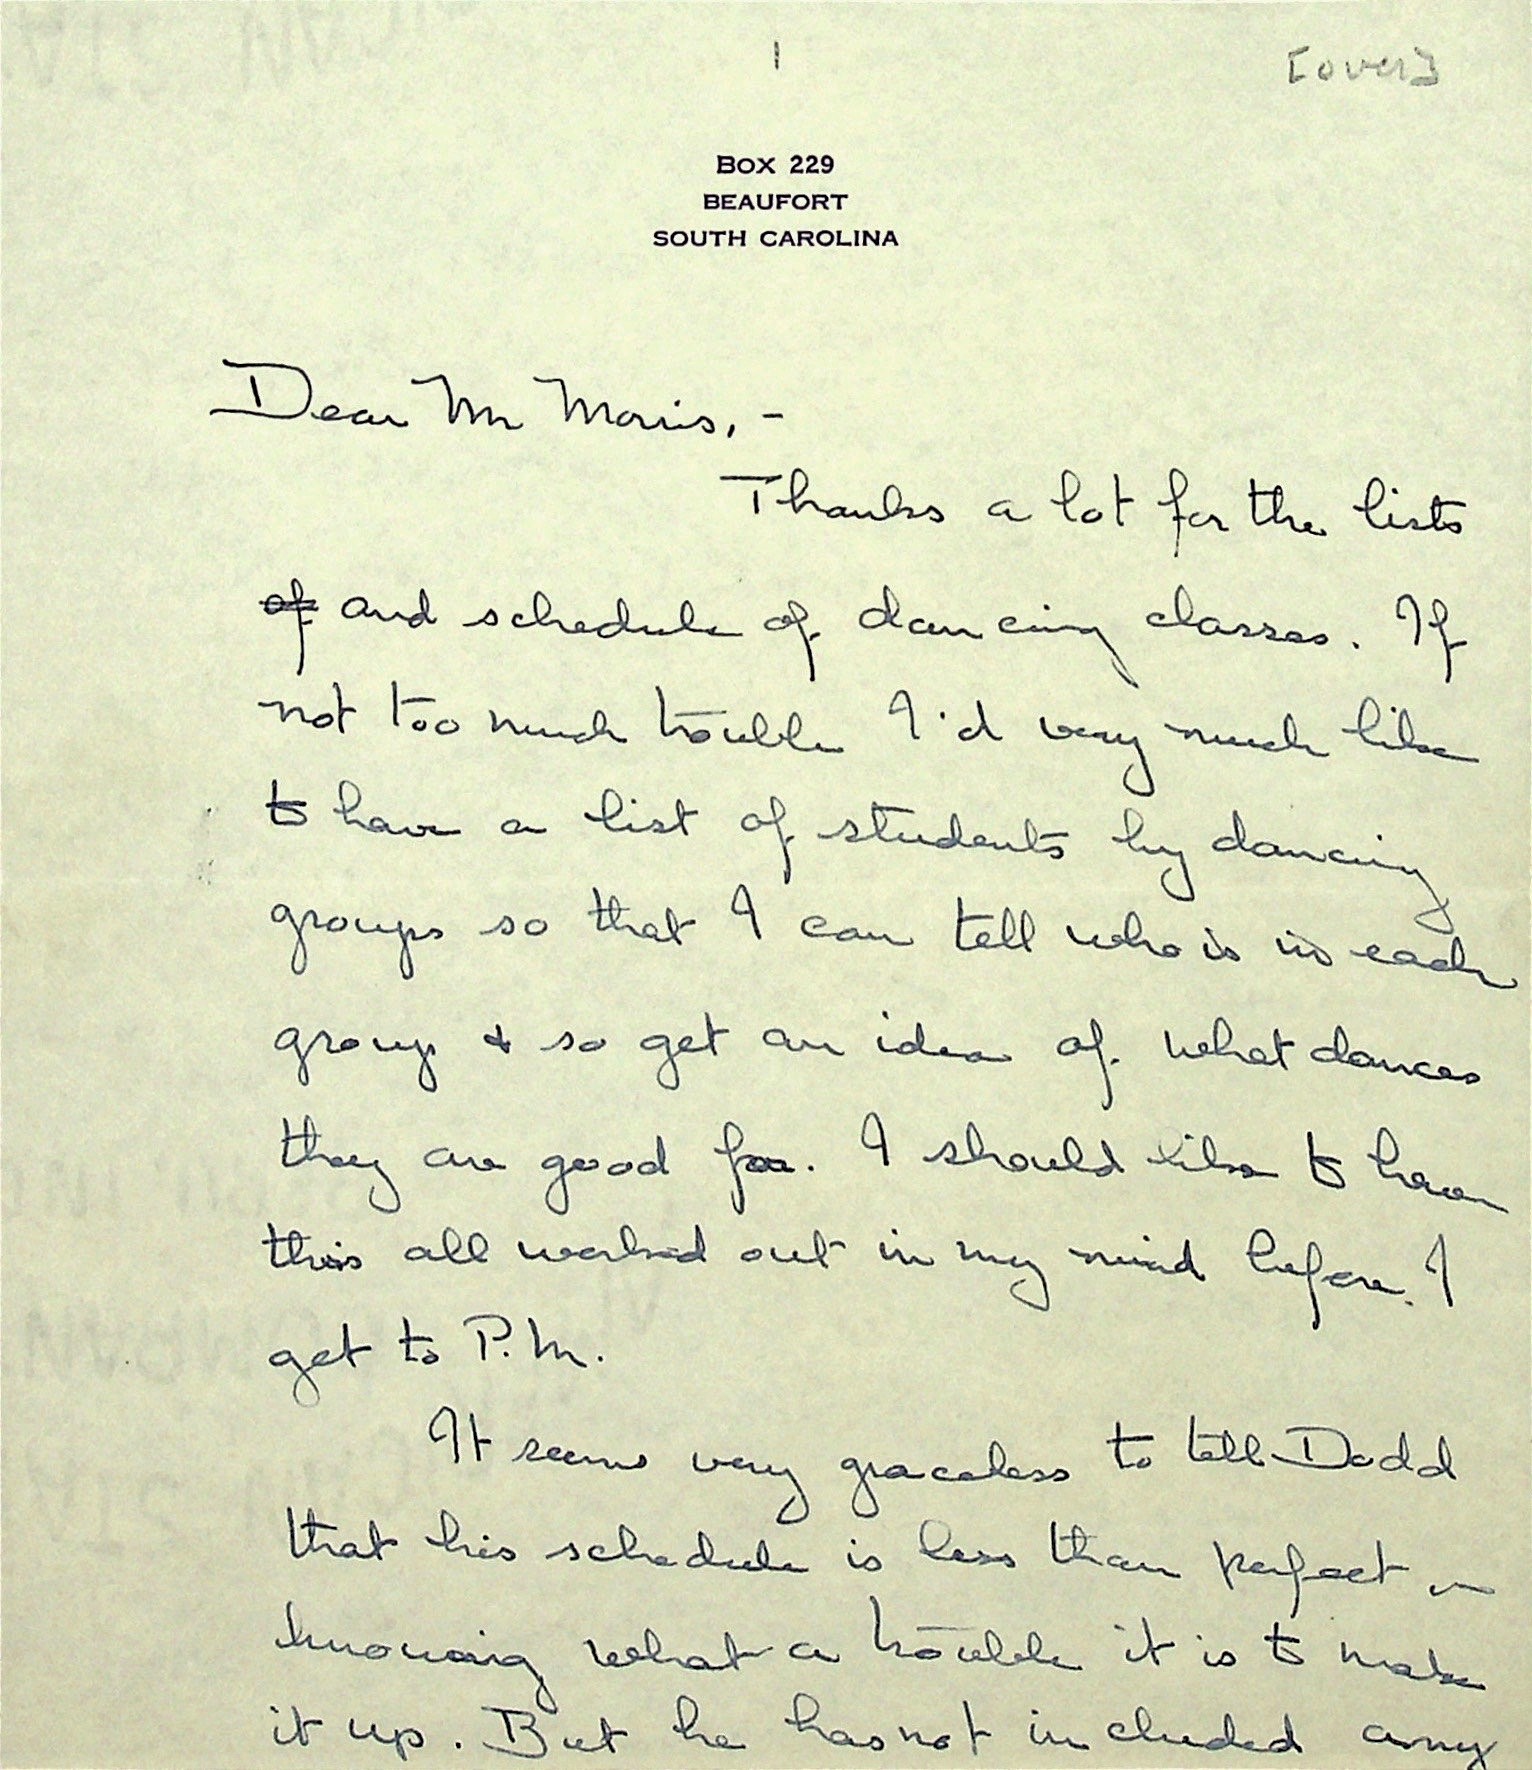 1
[over]
BOX 229
BEAUFORT
SOUTH CAROLINA
Dear Mr Morris, -
Thanks a lot for the lists
of and schedule of dancing classes. If
not too much trouble I'd very much like
to have a list of students by dancing
groups so that I can tell who is in each
group & so get an idea of what dances
they are good for. I should like to have
this all worked out in my mind before I
get to P.M.
It seems very graceless to tell Dodd
that his schedule is less than perfect
knowing what a trouble it is to make
it up. But he has not included any